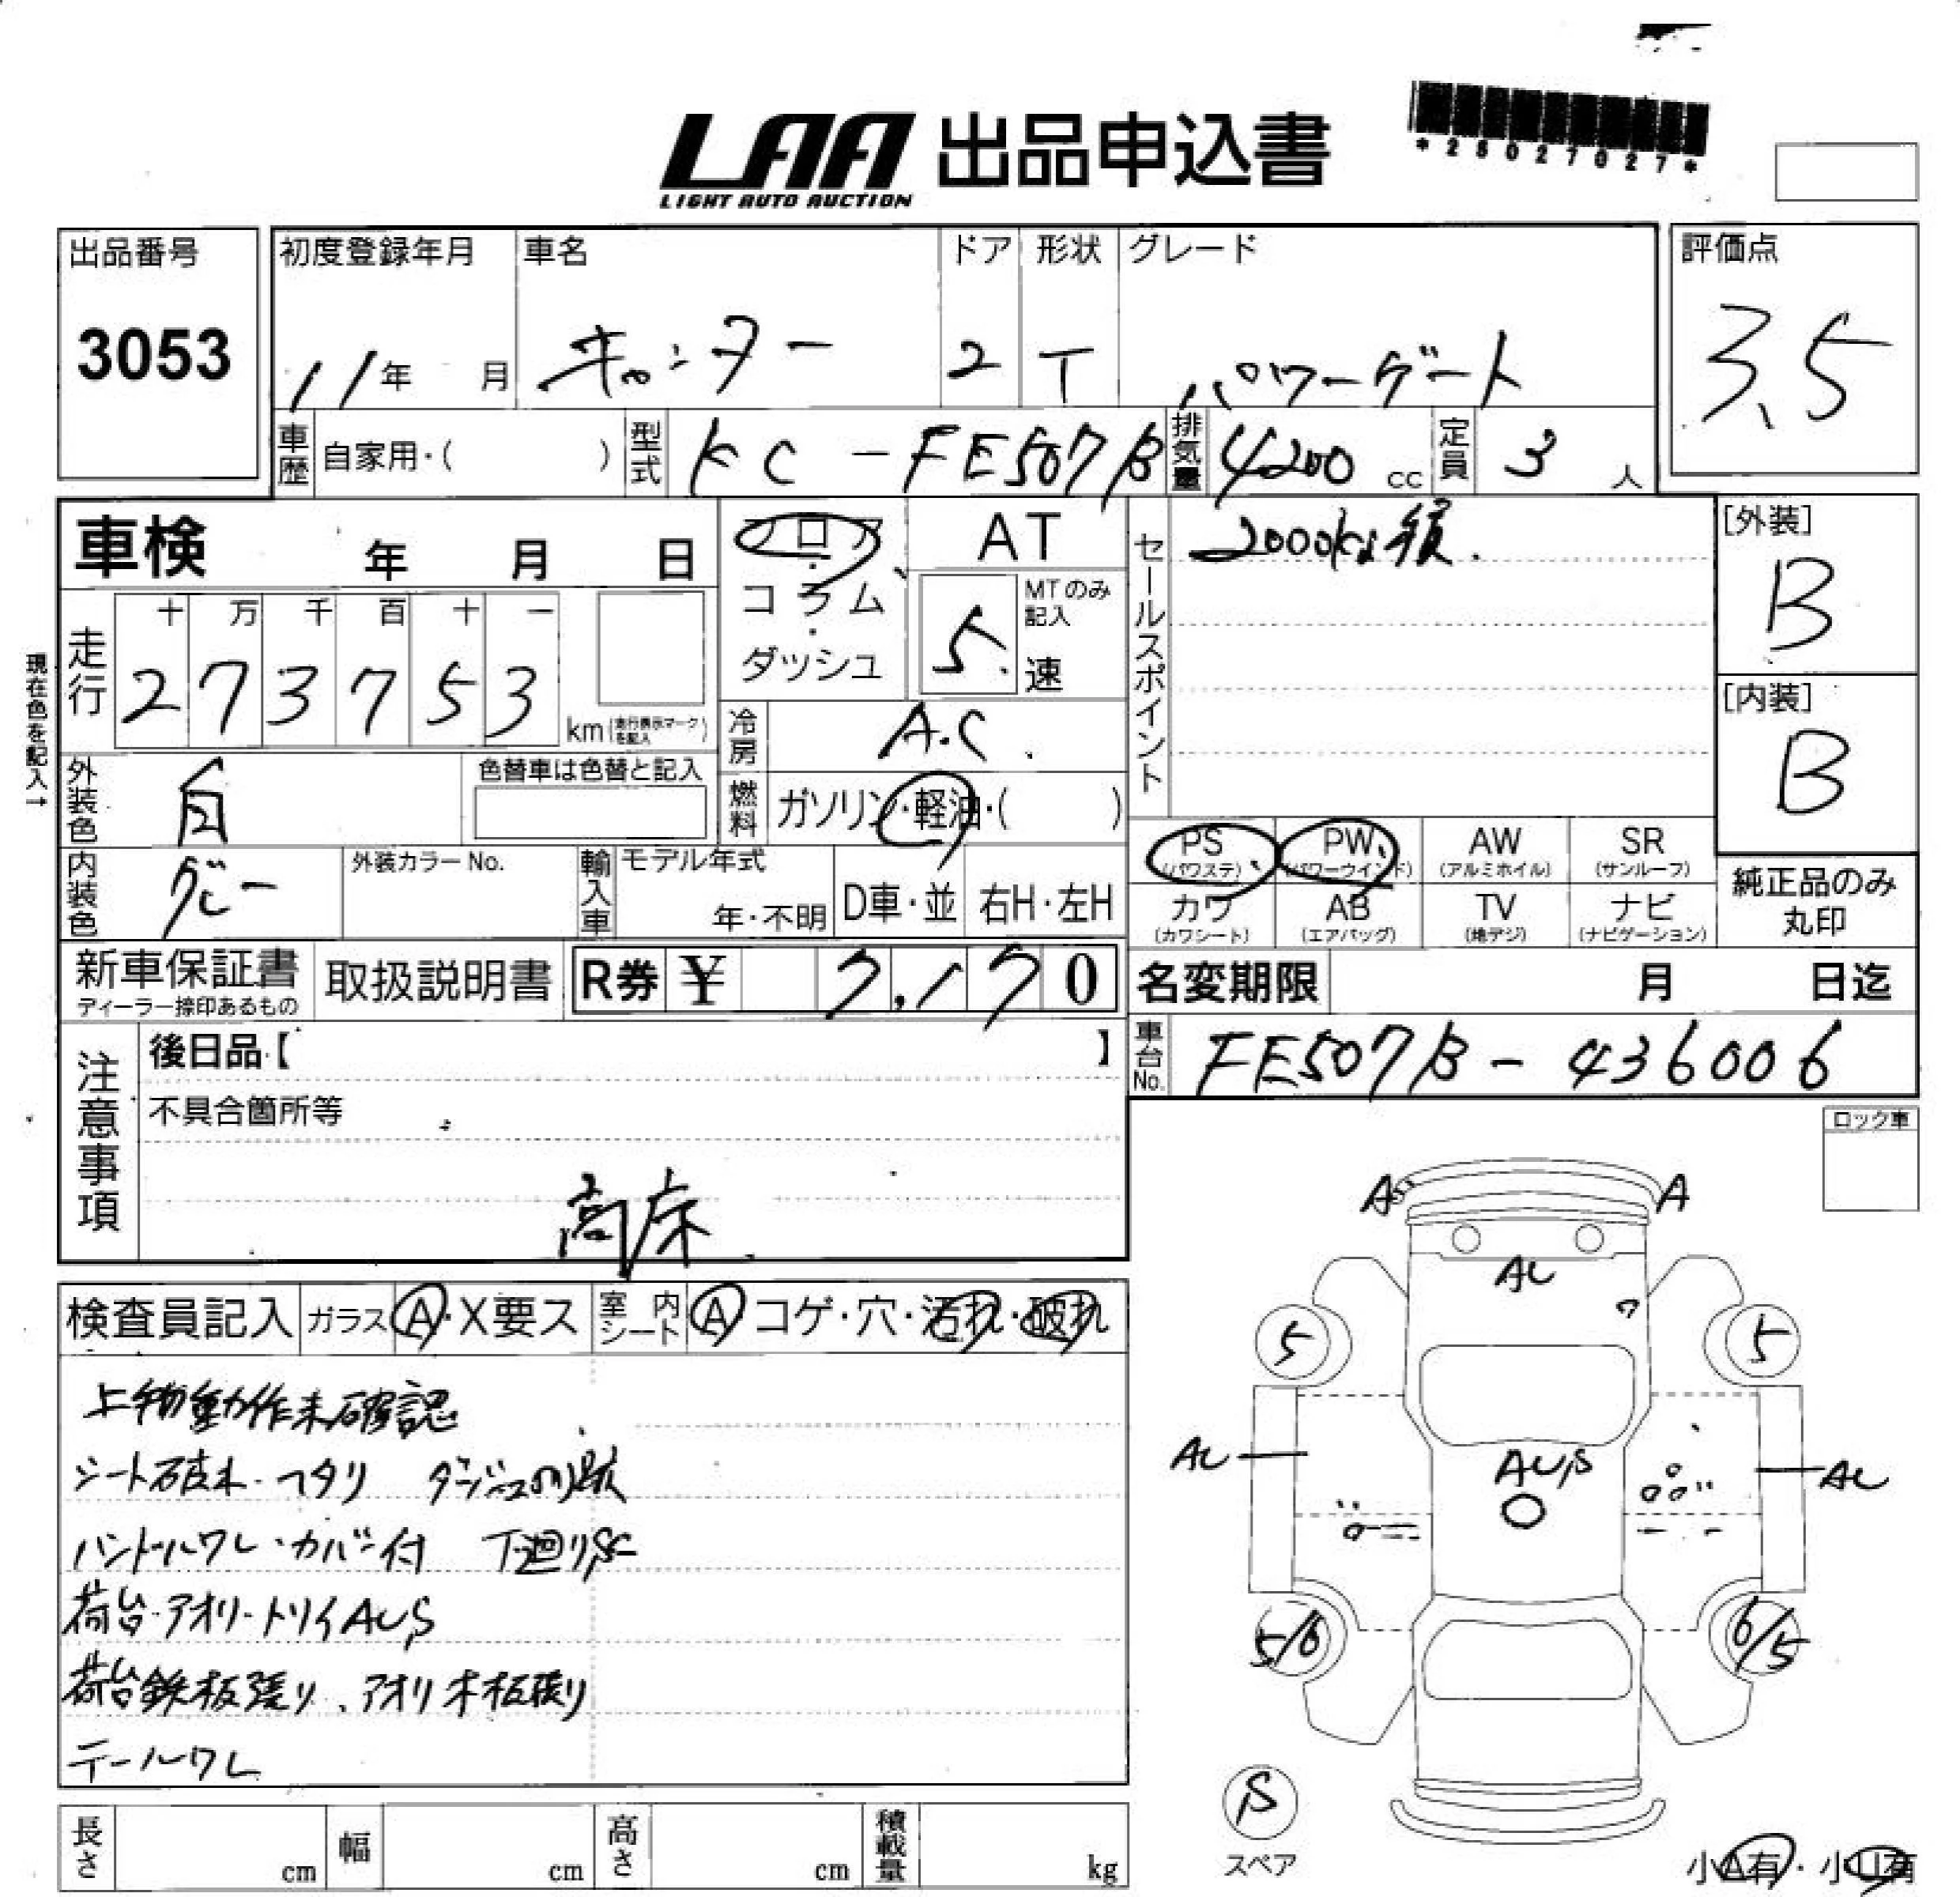 LAA 出品申込書
LIGHT AUTO AUCTION
*28027027*
出品番号 初度登録年月 車名 ドア 形状 グレード 評価点
3053 11年 月 キャンター 2 T パワーゲート 3.5
車歴 自家用・( ) 型式 KC-FE507B 排気量 4200 cc 定員 3 人
車検 年 月 日
フロア・コラム・ダッシュ
AT
5 MTのみ記入 速
セールスポイント 2000kg積.
[外装] B
[内装] B
現在色を記入→
走行 十 万 千 百 十 一
2 7 3 7 5 3 km(走行表示マークを記入)
冷房 A.C.
外装色 白 色替車は色替と記入
燃料 ガソリン・軽油・( )
PS (パワステ) PW (パワーウインド) AW (アルミホイル) SR (サンルーフ)
カワ (カワシート) AB (エアバッグ) TV (地デジ) ナビ (ナビゲーション)
純正品のみ丸印
内装色 グレー 外装カラーNo. 輸入車 モデル年式 年・不明 D車・並 右H・左H
新車保証書 ディーラー捺印あるもの 取扱説明書 R券 ¥ 7,170
名変期限 月 日迄
車台No. FE507B-436006
注意事項 後日品【 】
不具合箇所等
高床
ロック車
検査員記入 ガラス A・X要ス 室内シート A コゲ・穴・汚れ・破れ
上物動作未確認
シート破れ・ヘタリ ダッシュ跡
ハンドルワレ・カバー付 下廻りS
荷台・アオリ・トリイAUS
荷台鉄板張り、アオリ木板張り
テールワレ
A A
AU
5 5
AU AUS AU
5/6 6/5
S
スペア
小A有・小U有
長さ cm 幅 cm 高さ cm 積載量 kg